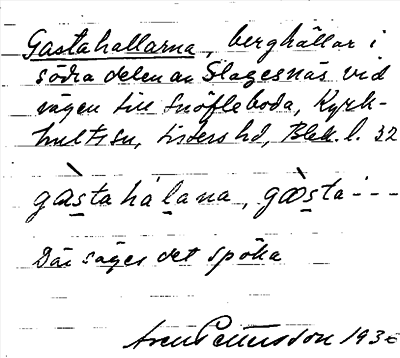 Gastahallarna, berghällar i
södra delen av Slagesnäs vid
vägen till Snöfleboda, Kyrk-
hults sn, Listers hd, Blek. l. 32
gàsta hálana, gòsta---
Där säges det spöka
Pettersson 193